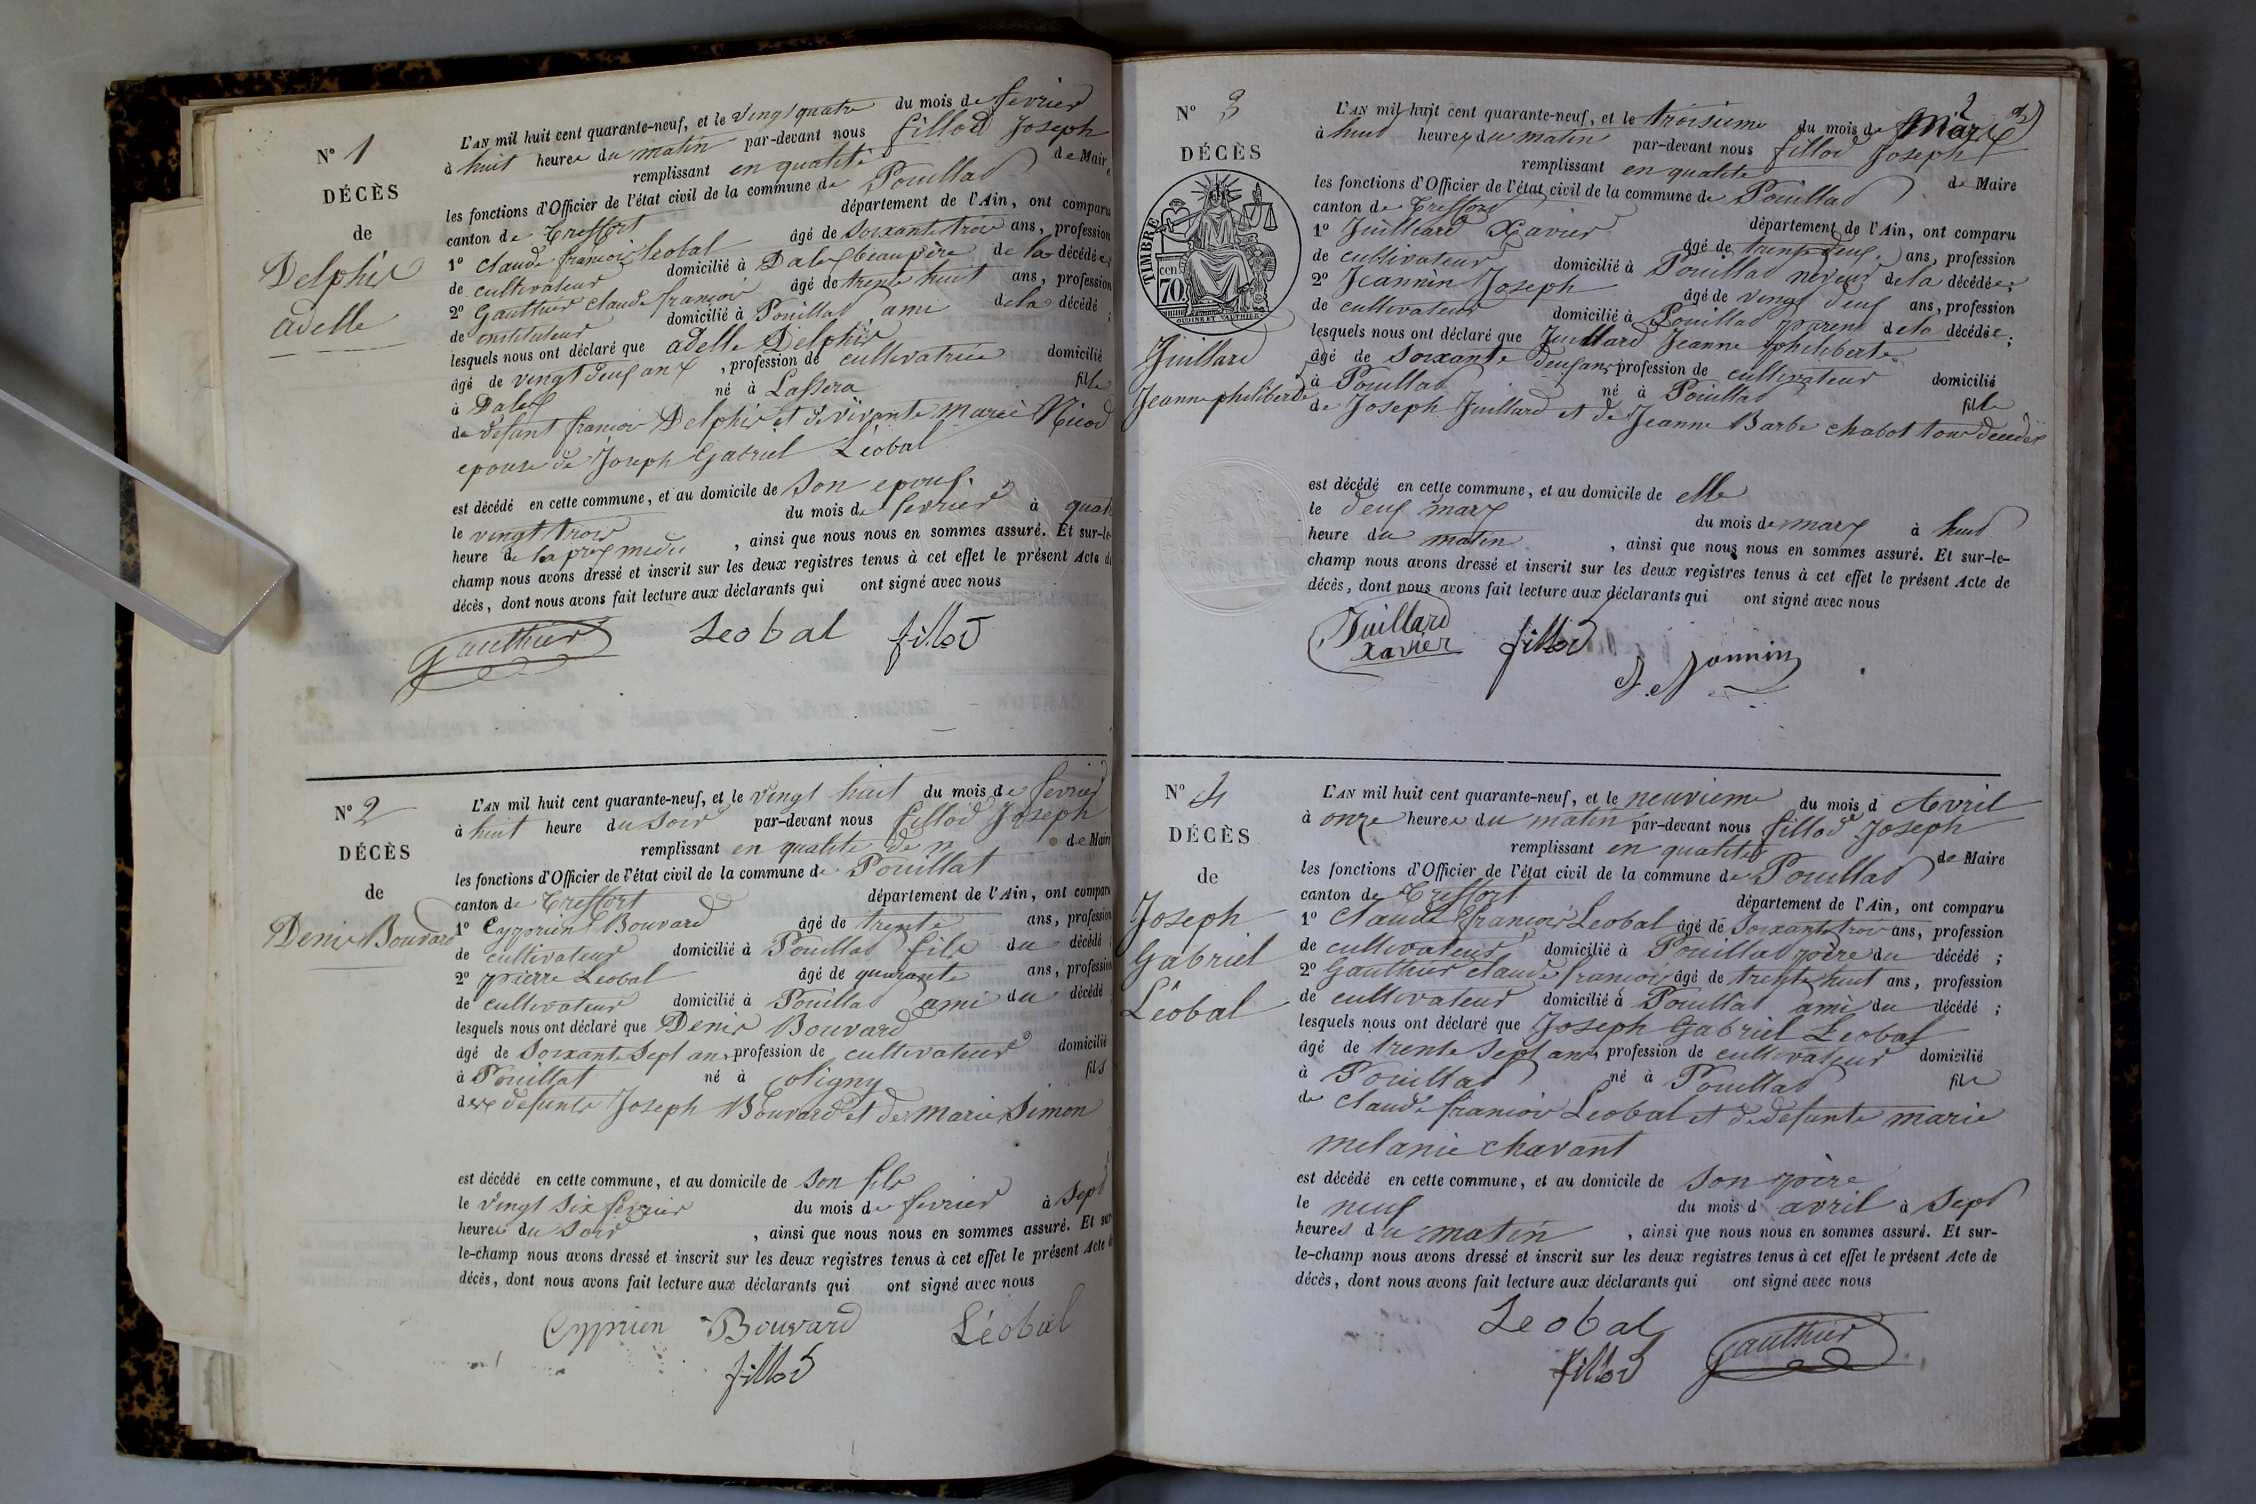 N° 1
DÉCÈS
de
Delphis
adelle
L'AN mil huit cent quarante-neuf, et le vingt quatre du mois de fevrier
à huit heures du matin par-devant nous fillod Joseph
remplissant en qualité de Maire
les fonctions d'Officier de l'état civil de la commune de Pouillad
canton de Treffort département de l'Ain, ont comparu
1° Claude françois Leobal âgé de Soixante trois ans, profession
de cultivateur domicilié à beaupère de la décédée
2° Gauthier Claude françois âgé de trente huit ans, profession
de instituteur domicilié à Pouillad ami de la décédé ;
lesquels nous ont déclaré que adelle Delphis
âgé de vingt deux ans, profession de cultivatrice domicilié
à né à fille
de defunt françois Delphis et de vivante Marie Nicod
epouse de Joseph Gabriel Léobal
est décédé en cette commune, et au domicile de Son epoux
le vingt trois du mois de fevrier à quatre
heure de la prex midi , ainsi que nous nous en sommes assuré. Et sur-le-
champ nous avons dressé et inscrit sur les deux registres tenus à cet effet le présent Acte de
décès, dont nous avons fait lecture aux déclarants qui ont signé avec nous
Gauthier Leobal fillod
N° 2
DÉCÈS
de
Denis Bouvard
L'AN mil huit cent quarante-neuf, et le vingt huit du mois de fevrier
à huit heure du soir par-devant nous fillod Joseph
remplissant en qualité de m de Maire
les fonctions d'Officier de l'état civil de la commune de Pouillat
canton de Treffort département de l'Ain, ont comparu
1° Cyprien Bouvard âgé de trente ans, profession
de cultivateur domicilié à Pouillad fils du décédé ;
2° pierre Leobal âgé de quarante ans, profession
de cultivateur domicilié à Pouillad ami du décédé
lesquels nous ont déclaré que Denis Bouvard
âgé de Soixante Sept ans, profession de cultivateur domicilié
à Pouillat né à Coligny fils
dex defunts Joseph Bouvard et de Marie Simon
est décédé en cette commune, et au domicile de Son fils
le vingt Six fevrier du mois de fevrier à Sept
heures du Soir , ainsi que nous nous en sommes assuré. Et sur
le-champ nous avons dressé et inscrit sur les deux registres tenus à cet effet le présent Acte de
décès, dont nous avons fait lecture aux déclarants qui ont signé avec nous
Cyprien Bouvard Léobal
fillod
2
N° 3
DÉCÈS
TIMBRE
cen
70
Juillard
Jeanne philiberte
L'AN mil huit cent quarante-neuf, et le troisieme du mois de Marx
à huit heures du matin par-devant nous fillod Joseph
remplissant en qualité de Maire
les fonctions d'Officier de l'état civil de la commune de Pouillad
canton de Treffort département de l'Ain, ont comparu
1° Juillard Xavier âgé de trente deux ans, profession
de cultivateur domicilié à Pouillad neveux de la décédée ;
2° Jeannin Joseph âgé de vingt deux ans, profession
de cultivateur domicilié à Pouillad parent de la décédée ;
lesquels nous ont déclaré que Juillard Jeanne philiberte
âgé de Soixante deux ans, profession de cultivateur domicilié
à Pouillad né à Pouillad fille
de Joseph Juillard et de Jeanne Barbe chabot tous decedés
est décédé en cette commune, et au domicile de elle
le deux marx du mois de marx à huit
heure du matin , ainsi que nous nous en sommes assuré. Et sur-le-
champ nous avons dressé et inscrit sur les deux registres tenus à cet effet le présent Acte de
décès, dont nous avons fait lecture aux déclarants qui ont signé avec nous
Juillard
Xavier fillod J. Jannin
N° 4
DÉCÈS
de
Joseph
Gabriel
Léobal
L'AN mil huit cent quarante-neuf, et le neuvieme du mois d Avril
à onze heures du matin par-devant nous fillod Joseph
remplissant en qualité de Maire
les fonctions d'Officier de l'état civil de la commune de Pouillad
canton de Treffort département de l'Ain, ont comparu
1° Claude françois Leobal âgé de Soixante trois ans, profession
de cultivateur domicilié à Pouillad père du décédé ;
2° Gauthier Claude françois âgé de trente huit ans, profession
de cultivateur domicilié à Pouillat ami du décédé ;
lesquels nous ont déclaré que Joseph Gabriel Leobal
âgé de trente Sept ans, profession de cultivateur domicilié
à Pouillad né à Pouillad fils
de Claude françois Leobal et de defunte marie
melanie chavant
est décédé en cette commune, et au domicile de Son père
le neuf du mois d avril à Sept
heures du matin , ainsi que nous nous en sommes assuré. Et sur-
le-champ nous avons dressé et inscrit sur les deux registres tenus à cet effet le présent Acte de
décès, dont nous avons fait lecture aux déclarants qui ont signé avec nous
Leobal
fillod Gauthier